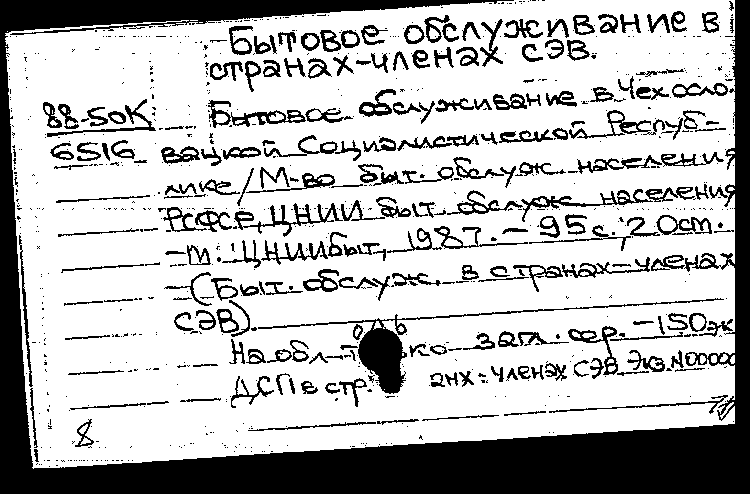 Бытовое обслуживание в
странах-членах СЭВ.
88-50К Бытовое обслуживание в Чехосло-
6516 вацкой Социалистической Респуб-
лике/М-во быт. обслуж. населения
РСФСР, ЦНИИ быт. обслуж. населения
-М.: ЦНИИбыт, 1987. - 95 с.; 20 см.
-(Быт. обслуж. в странах-членах
СЭВ).
На обл. загл. сер. - 150 эк
ДСП в стр. анах-членах СЭВ. Экз. N00000
8